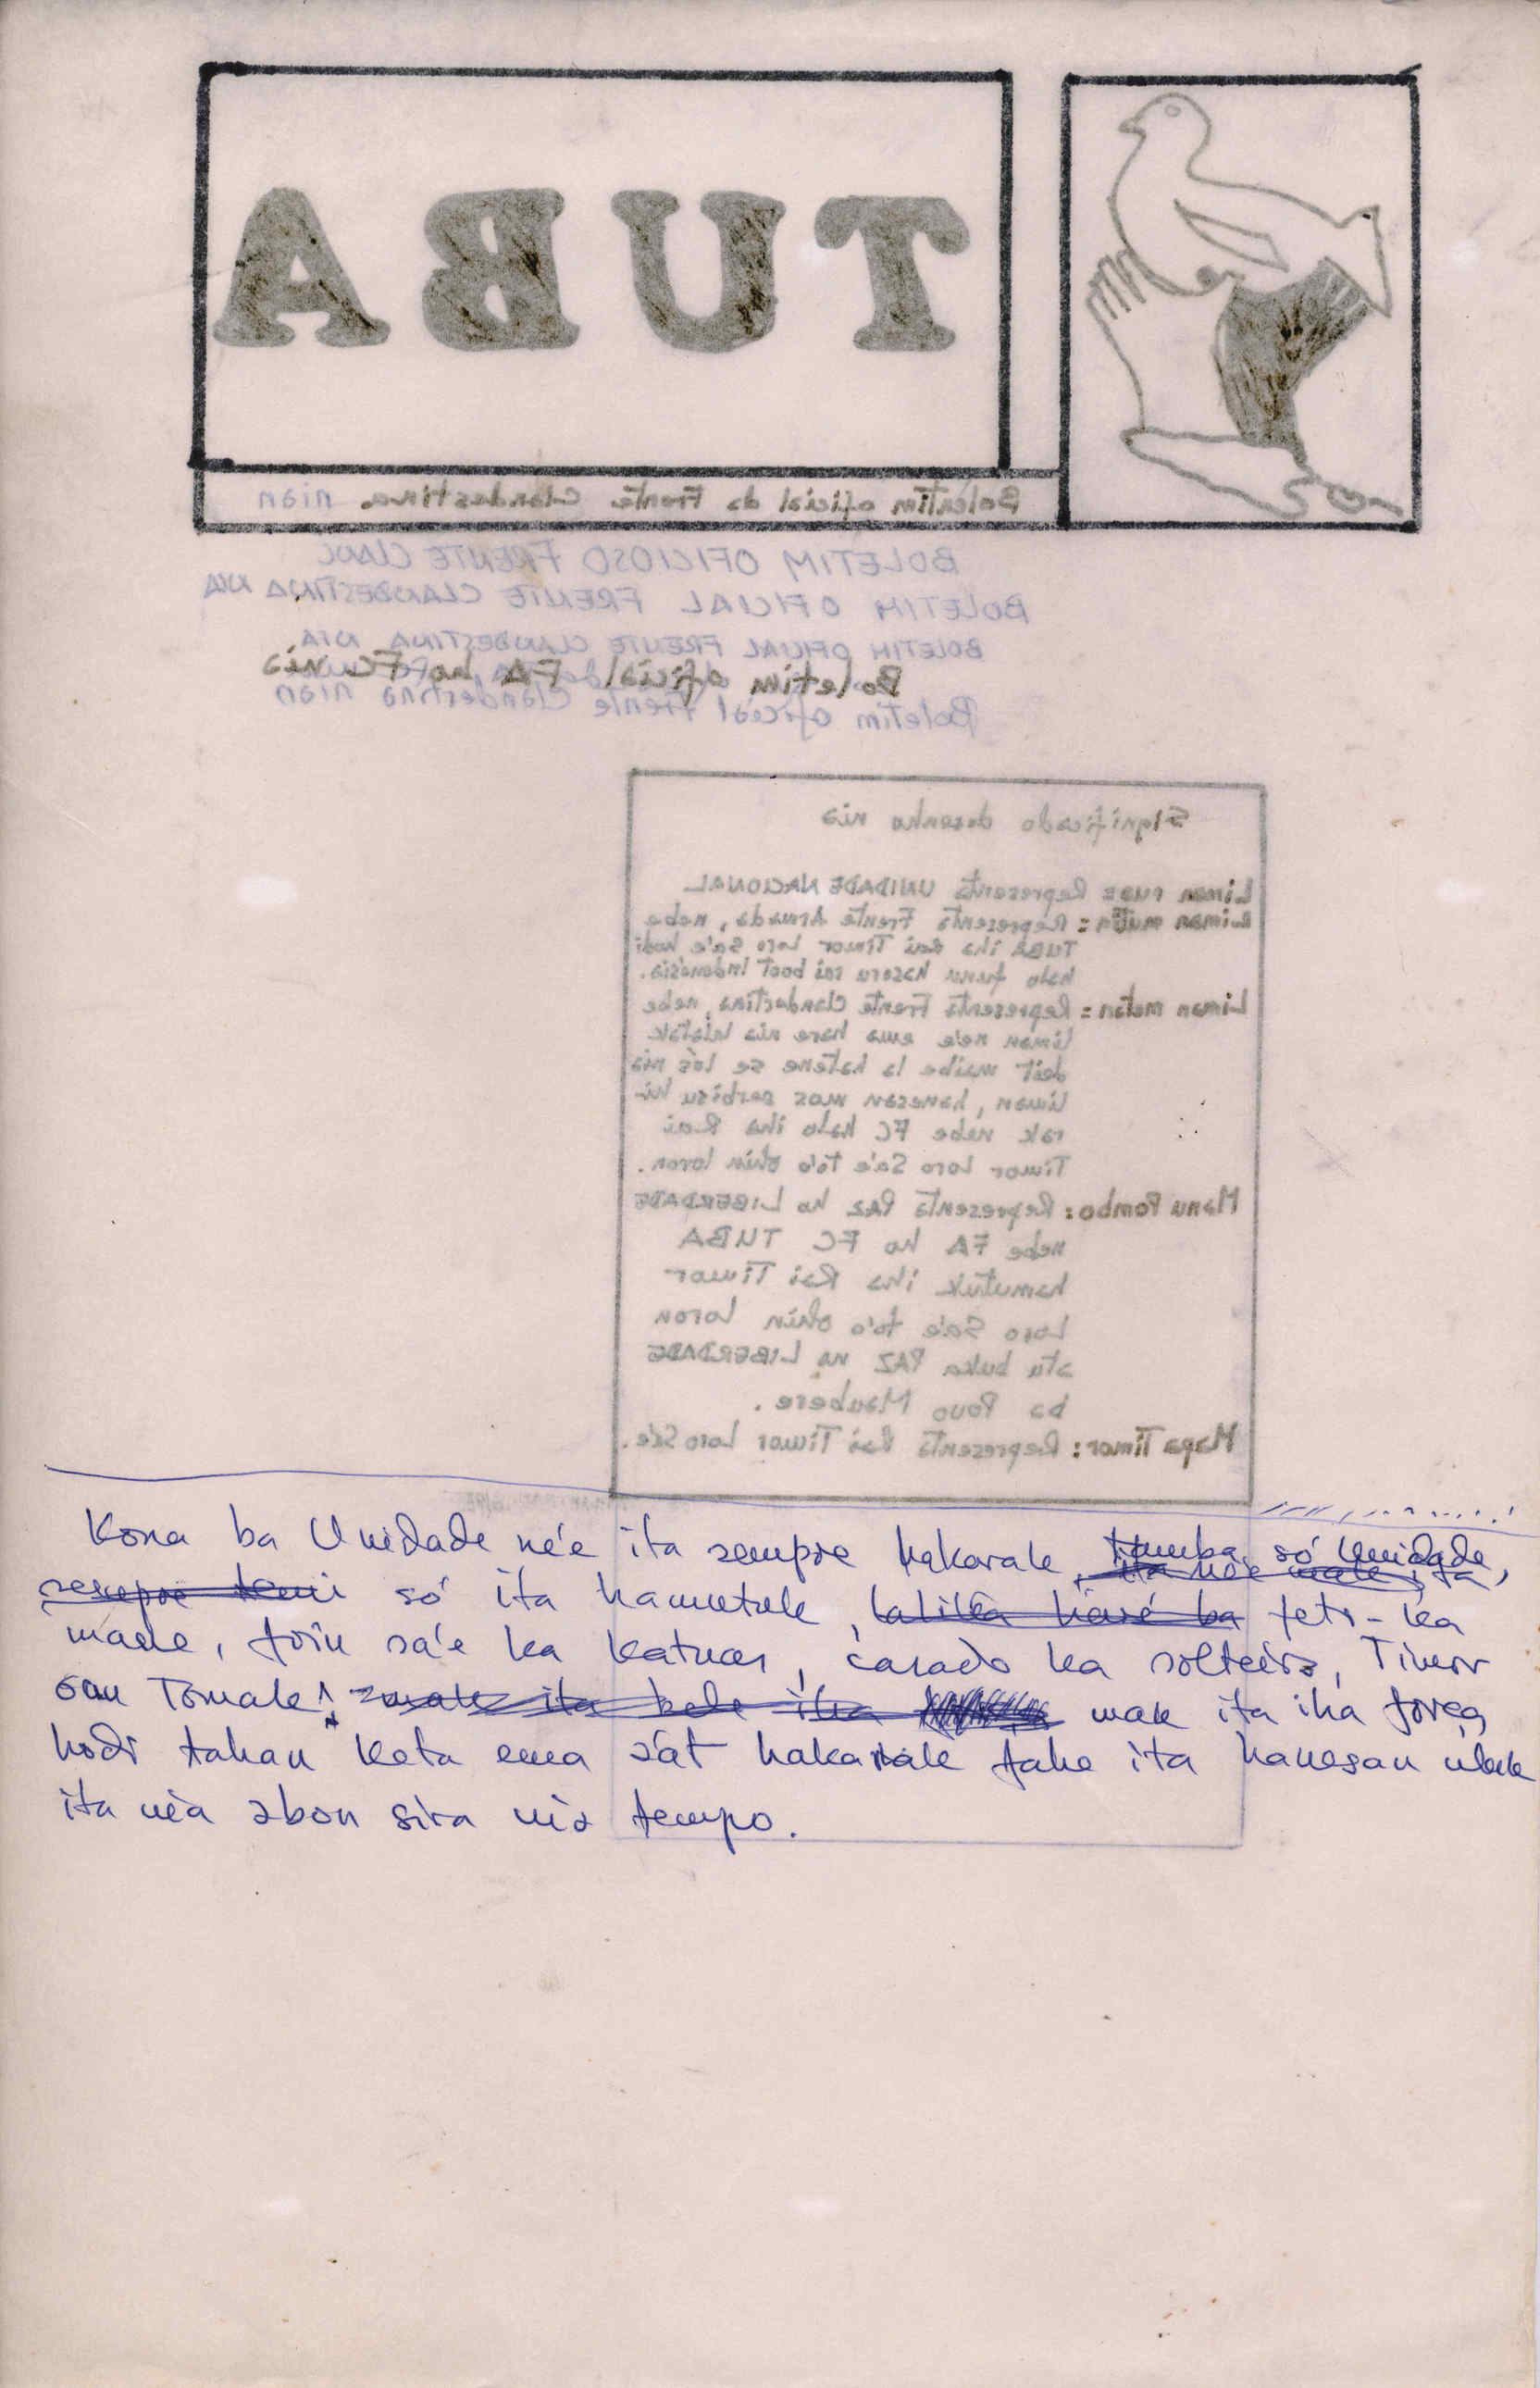 TUBA
Boletim oficial da Frente Clandestina nian
BOLETIM OFICIOSO FRENTE CLANC
BOLETIM OFICIAL FRENTE CLANDESTINA NIA
BOLETIM OFICIAL FRENTE CLANDESTINA NIA
Boletim oficial FA ho FC nia
Boletim oficial Frente Clandestina nian
Significado desenho nia
Liman rua = Representa UNIDADE NACIONAL
Liman mutin = Representa Frente Armada, nebe
TUBA iha Rai Timor Loro Sa'e hodi
halo funu hasoru rai boot Indonésia.
Liman metan = Representa Frente Clandestina, nebe
liman ne'e ema hare nia lalatak
deit maibe la hatene se lo's nia
liman, hanesan mos serbisu hi-
rak nebe FC halo iha Rai
Timor Loro Sa'e to'o ohin loron.
Manu Pombo: Representa PAZ ho LIBERDADE
nebe FA ho FC TUBA
hamutuk iha Rai Timor
Loro Sa'e to'o ohin loron
atu buka PAZ na LIBERDADE
ba Povo Maubere.
Mapa Timor: Representa Rai Timor Loro Sa'e.
Kona ba Unidade ne'e ita sempre hakarak, só Unidade,
sempre temi só ita hamutuk, lalika haré ba feto-ka
mane, foin sa'e ka katuas, casado ka solteiro, Timor
oan Tomak! mak ita iha força
hodi tahan keta ema sa'at hakarak fahe ita hanesan uluk
ita nia abon sira nia tempo.